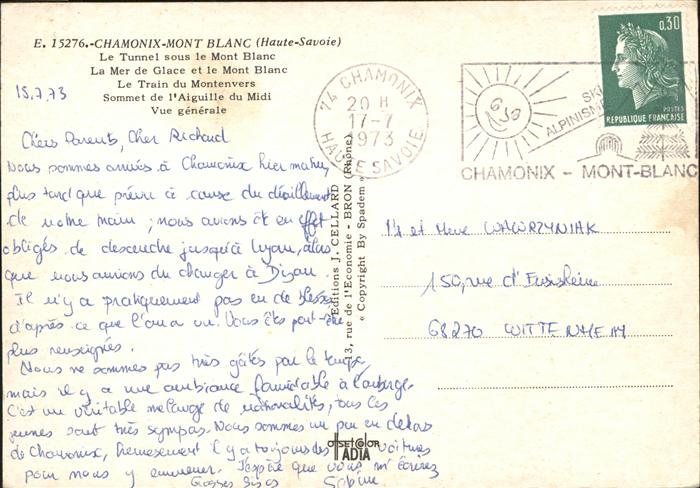 E. 15276.-CHAMONIX-MONT BLANC (Haute-Savoie)
Le Tunnel sous le Mont Blanc
La Mer de Glace et le Mont Blanc
Le Train du Montenvers
Sommet de l'Aiguille du Midi
Vue générale
15.7.73
Chers Parents, Cher Richard
Nous sommes arrivés à Chamonix hier matin,
plus tard que prévu à cause du déraillement
de notre train ; nous avions été en effet
obligés de descendre jusqu'à Lyon, alors
que nous aurions dû changer à Dijon.
Il n'y a pratiquement pas eu de blessés
d'après ce que l'on a vu. Vous êtes peut-être
plus renseignés.
Nous ne sommes pas très gâtés par le temps,
mais il y a une ambiance formidable à l'auberge.
C'est un véritable mélange de nationalités, tous les
jeunes sont très sympas. Nous sommes un peu en dehors
de Chamonix, heureusement il y a toujours des voitures
pour nous y emmener. J'espère que vous m'écrirez
Grosses Bises Sabine
Editions J. CELLARD
13, rue de l'Economie - BRON (Rhône)
« Copyright By Spadem »
offset color
ADIA
74 CHAMONIX
20 H
17-7
1973
HAUTE SAVOIE
SKI
ALPINISME
CHAMONIX - MONT-BLANC
0,30
POSTES
REPUBLIQUE FRANÇAISE
M et Mme WAWRZYNIAK
150, rue d'Ensisheim
68270 WITTENHEIM